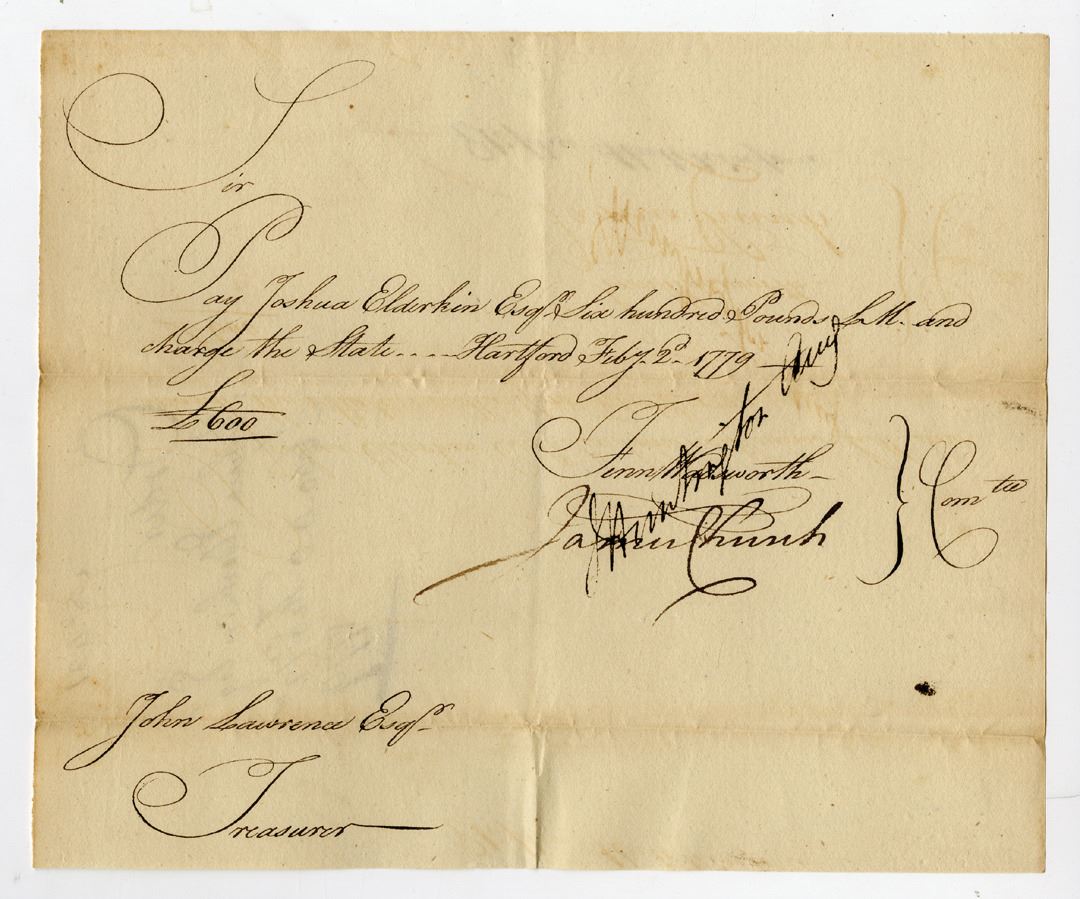 Sir
Pay Joshua Elderkin Esqr. Six hundred Pounds L.M. and
charge the State .... Hartford Feby. 2d. 1779
£600
Fenn Wadsworth
James Church
Comtee
J Huntington
John Lawrence Esqr.
Treasurer